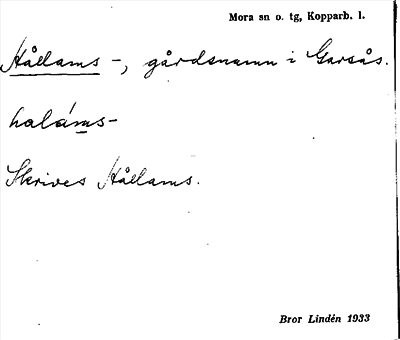 Mora sn o. tg, Kopparb. l.
Hållams -, gårdsnamn i Garsås.
halám̲s-
Skrives Hållams.
Bror Lindén 1933